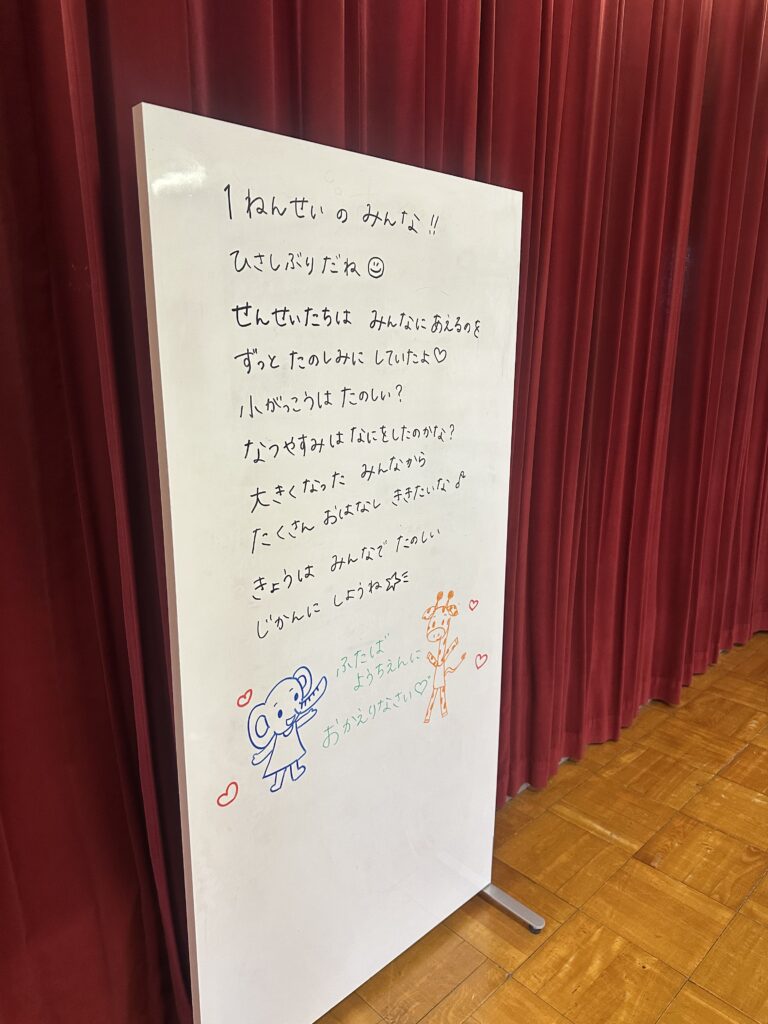 1ねんせい の みんな!!
ひさしぶりだね☺
せんせいたちは みんなにあえるのを
ずっと たのしみに していたよ♡
小がっこうは たのしい?
なつやすみは なにをしたのかな?
大きくなった みんなから
たくさん おはなし ききたいな♪
きょうは みんなで たのしい
じかんに しようね☆
ふたば
ようちえんに
おかえりなさい♡